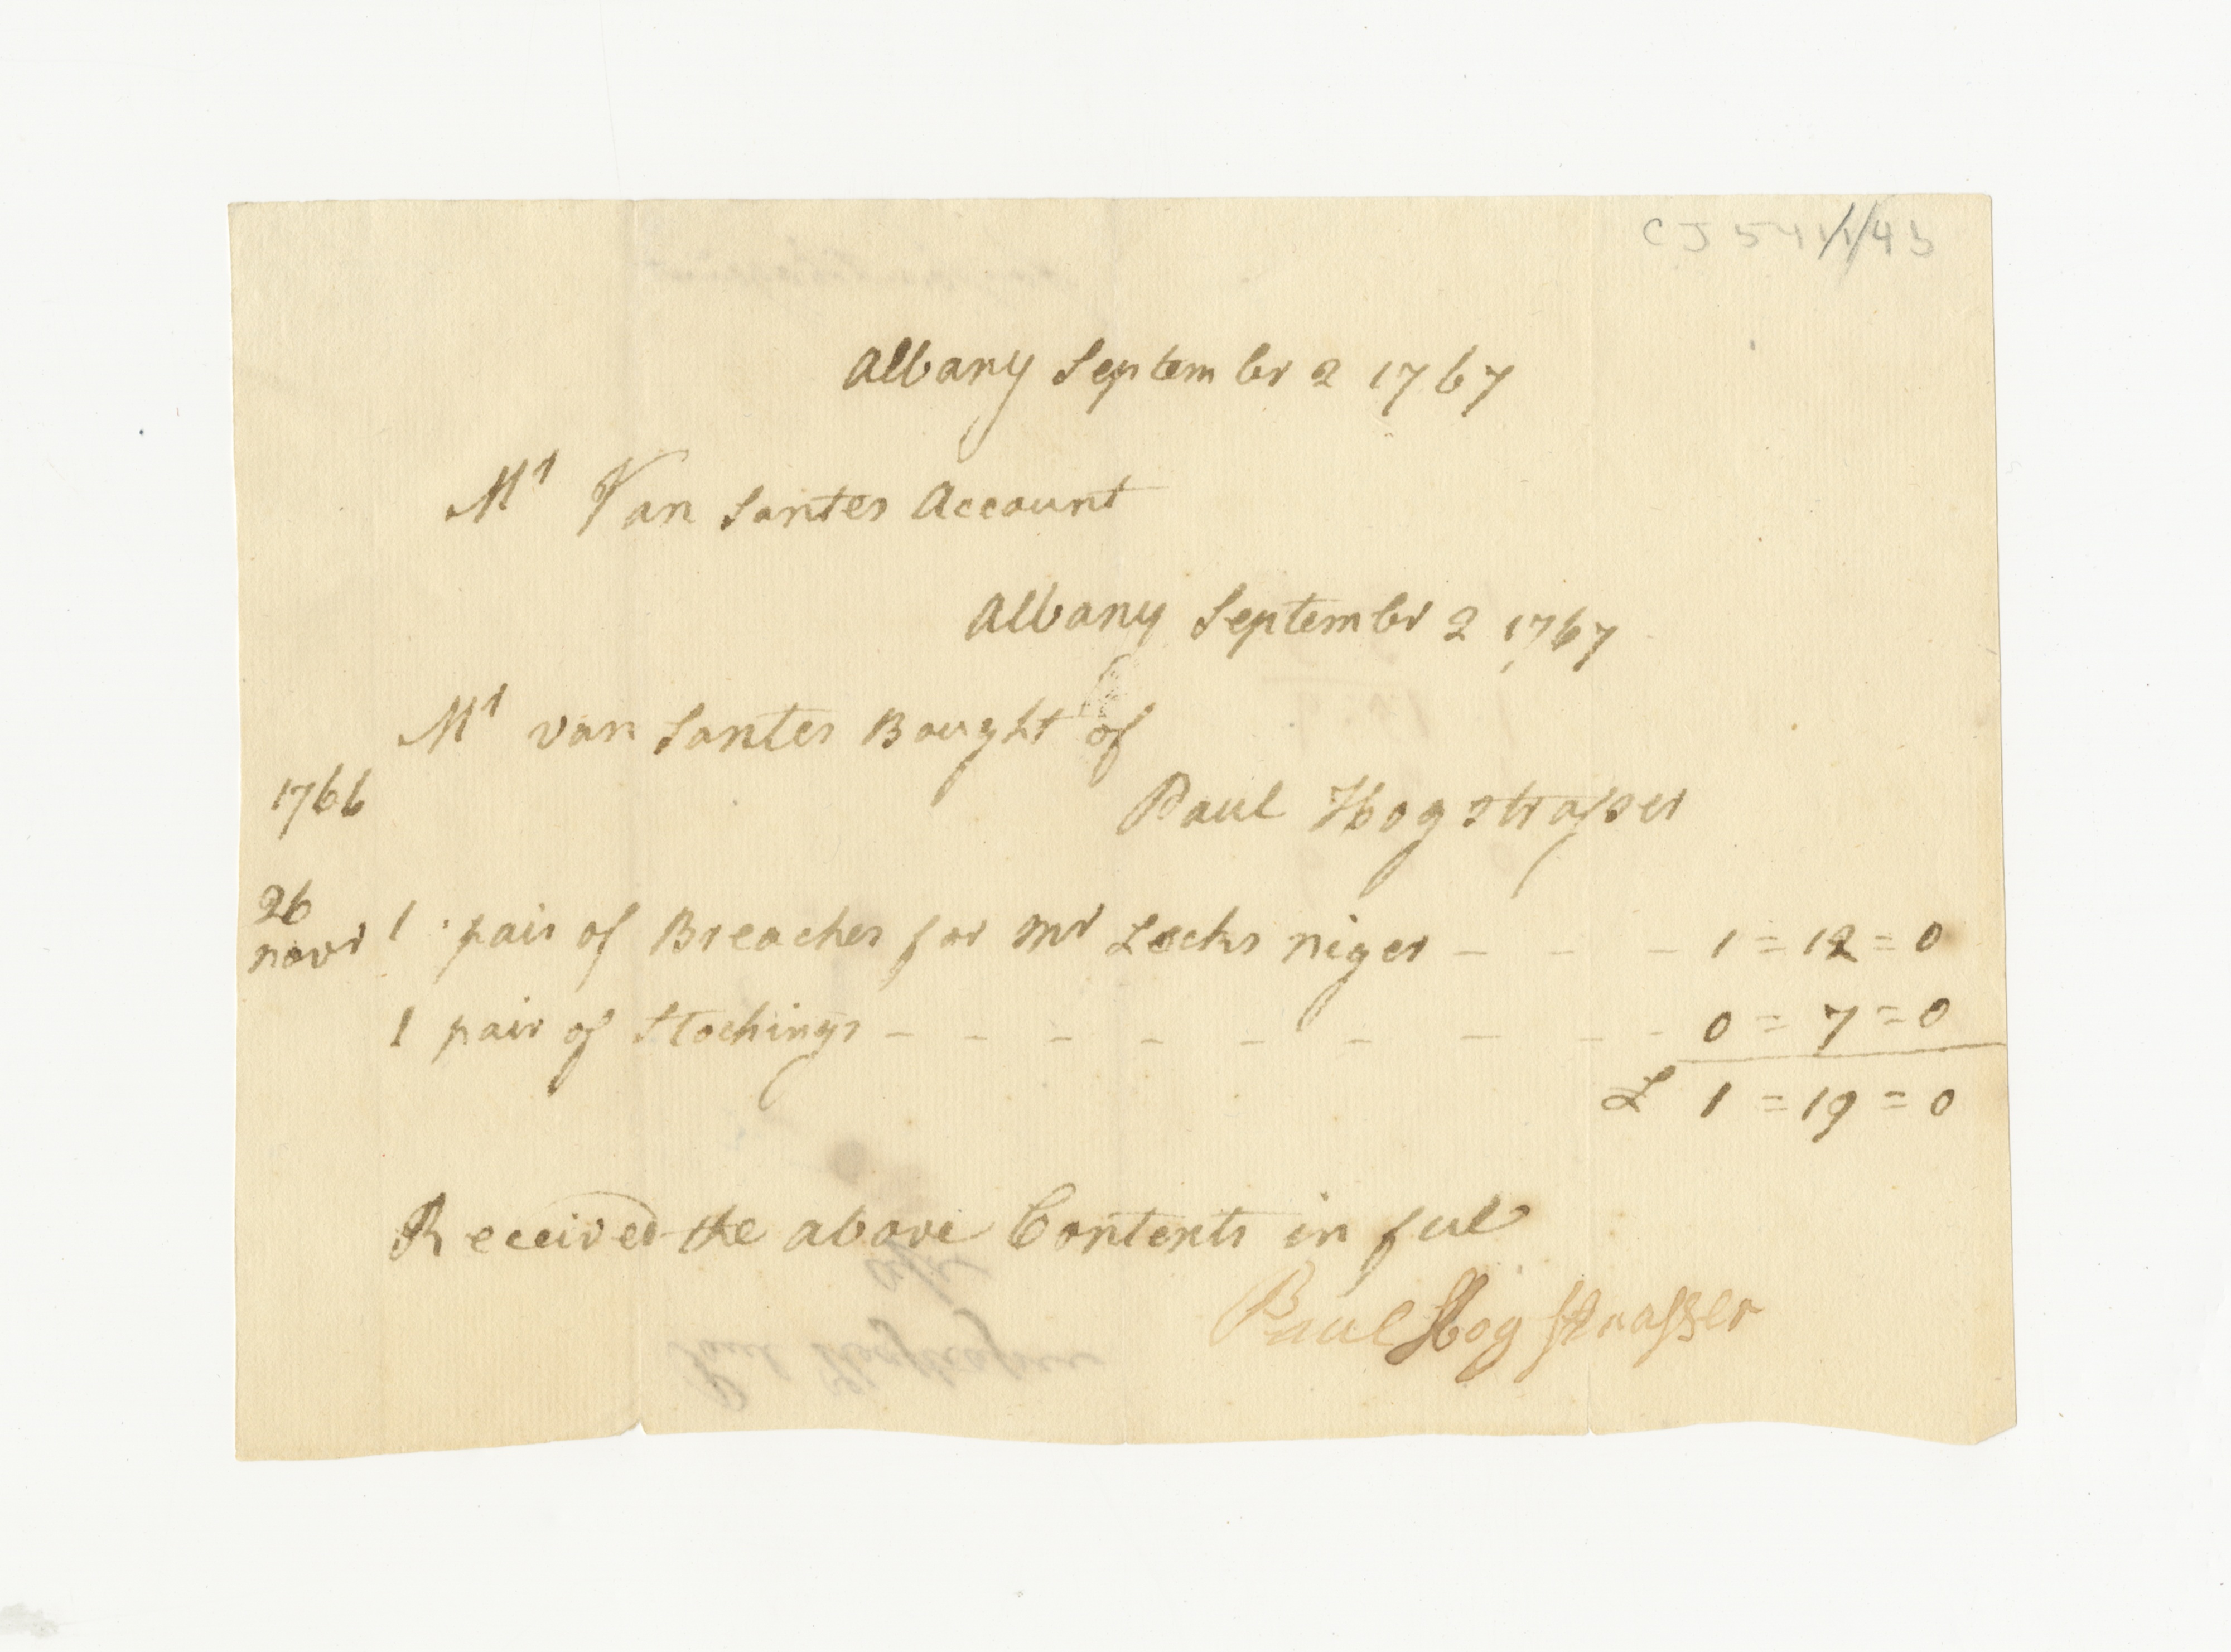 Albany Septembr 2 1767
Mr Van Santes Account
Albany Septembr 2 1767
Mr van Santes Bought of
1766
Paul Hogstrasser
26
novr 1 pair of Breaches for Mr Lecks niger - - - 1=12=0
1 pair of Stockings - - - - - - - - - 0=7=0
£ 1=19=0
Received the above Contents in ful
Paul Hog strasser